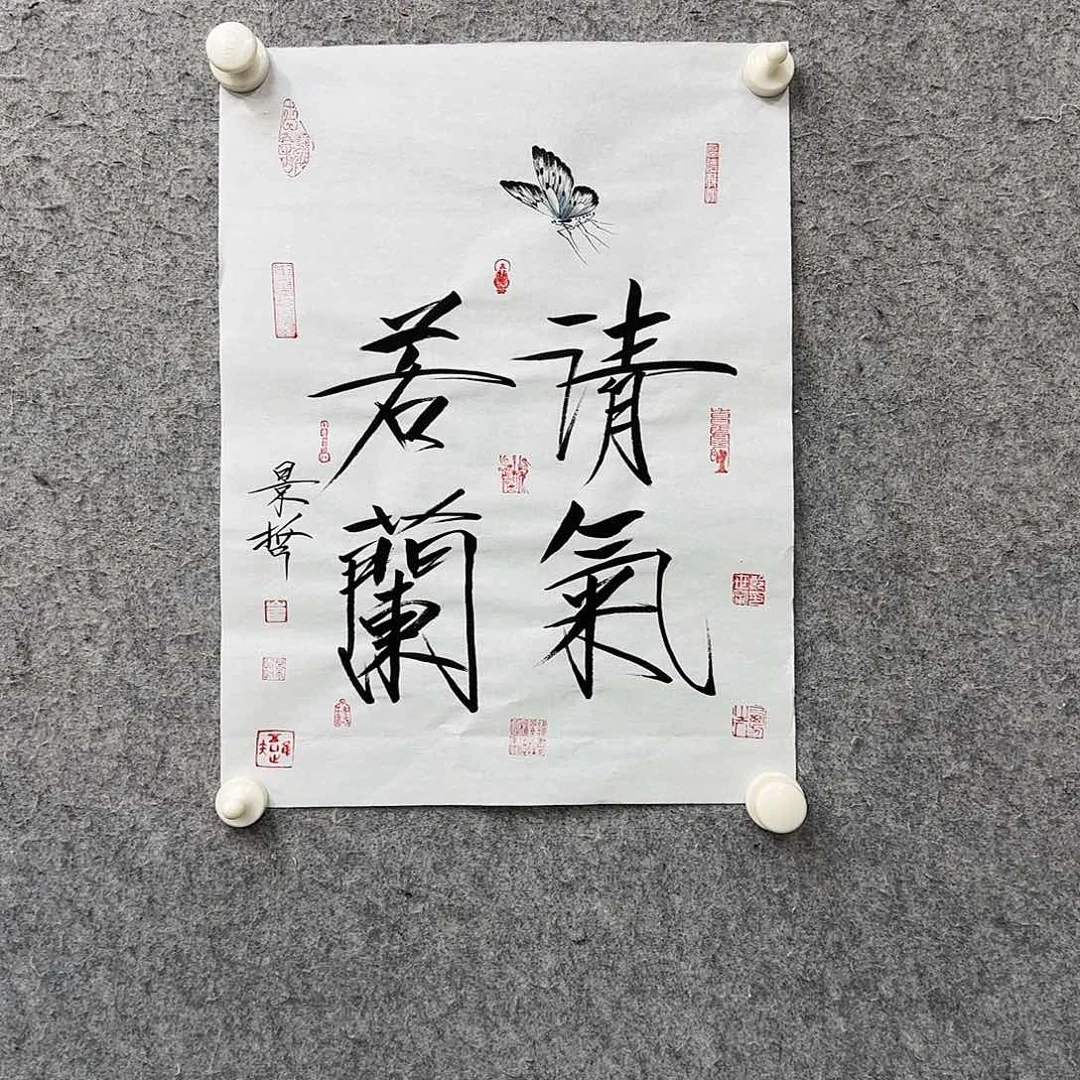 请氣
若蘭
景哲